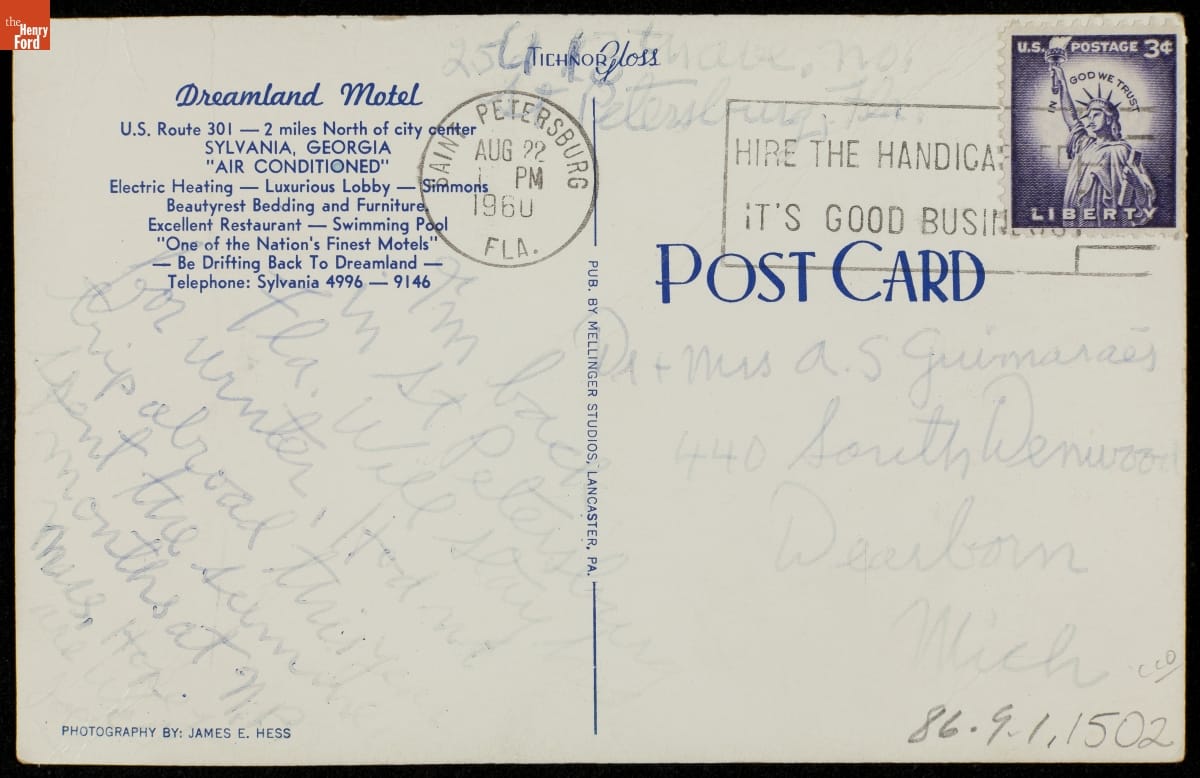 the Henry Ford
TICHNOR Gloss
Dreamland Motel
U.S. Route 301 — 2 miles North of city center
SYLVANIA, GEORGIA
"AIR CONDITIONED"
Electric Heating — Luxurious Lobby — Simmons
Beautyrest Bedding and Furniture
Excellent Restaurant — Swimming Pool
"One of the Nation's Finest Motels"
— Be Drifting Back To Dreamland —
Telephone: Sylvania 4996 — 9146
SAINT PETERSBURG
AUG 22
PM
1960
FLA.
256 18th ave. no.
St Petersburg, Fla.
HIRE THE HANDICAPPED
IT'S GOOD BUSINESS
U.S. POSTAGE 3¢
IN GOD WE TRUST
LIBERTY
POST CARD
PUB. BY MELLINGER STUDIOS, LANCASTER, PA.
Dr + Mrs A. S Guimaraes
440 South Denwood
Dearborn
Mich
am back
in St Petersburg
Fla. Will stay
for winter. Had no
trip abroad this year
Spent the summer
months at
PHOTOGRAPHY BY: JAMES E. HESS
86.9.1.1502